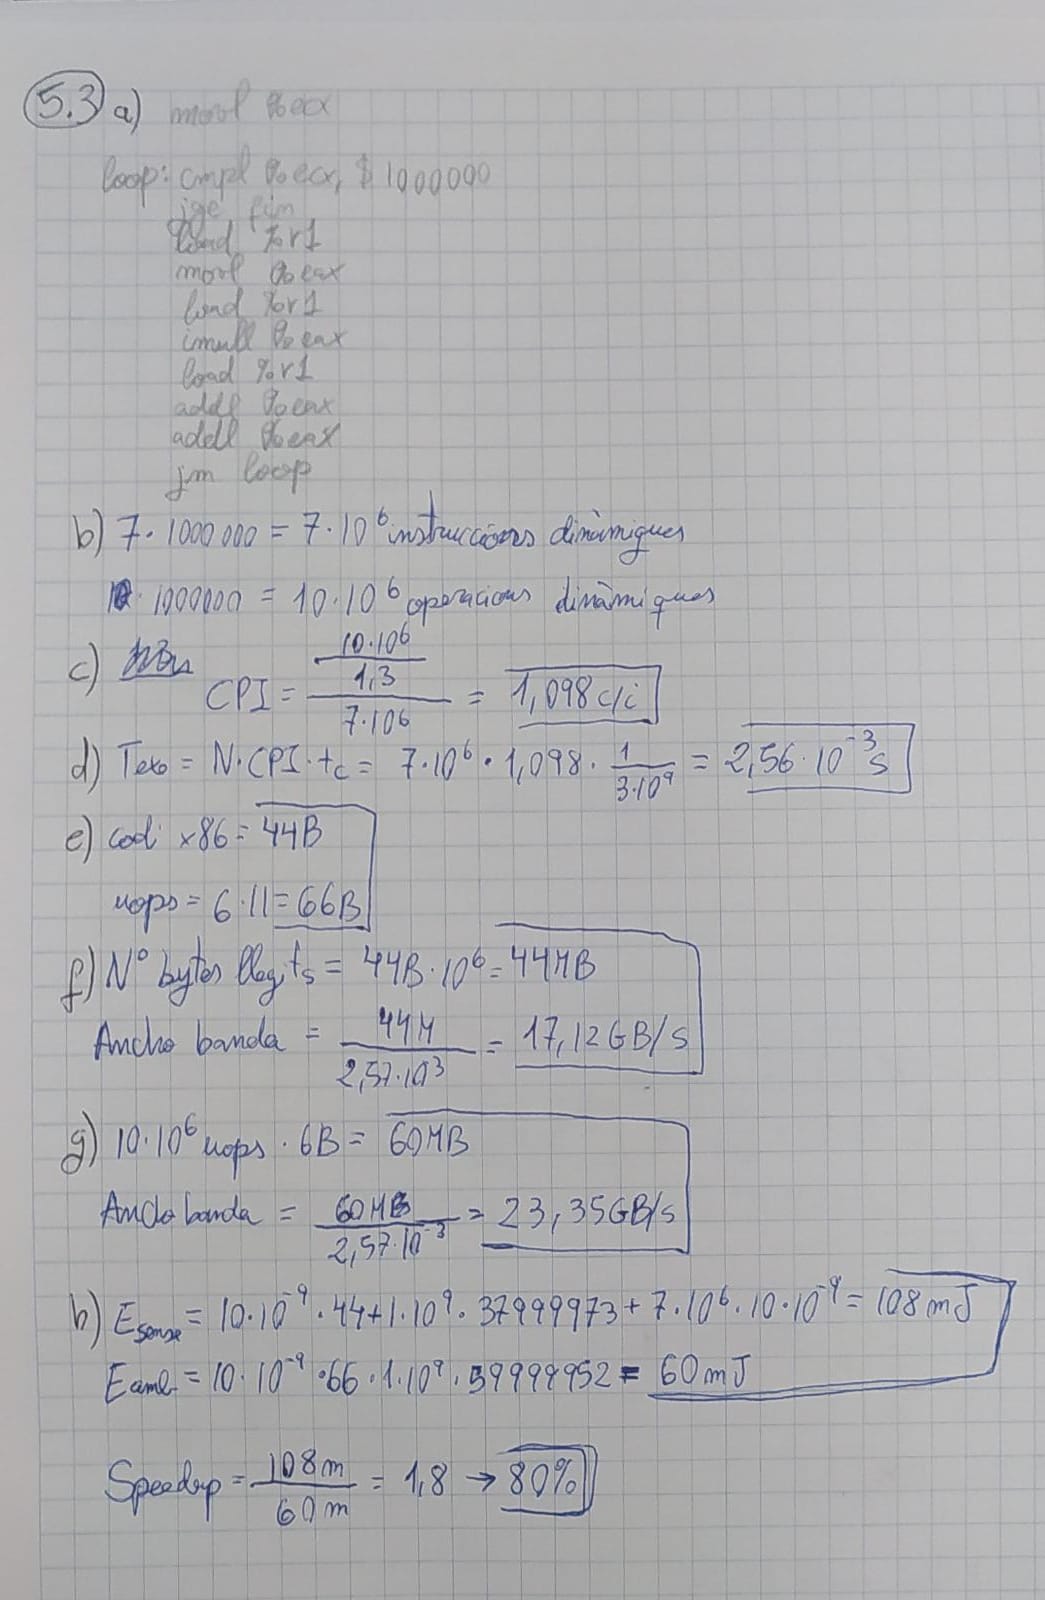 5.3 a) movl %ecx
loop: cmpl %ecx, $1000000
jge fim
load %r1
movl %eax
load %r1
imull %eax
load %r1
addl %eax
addl %eax
jm loop
b) 7·1000000 = 7·10⁶ instruccions dinàmiques
10·1000000 = 10·10⁶ operacions dinàmiques
c) CPI = ((10·10⁶)/1,3)/(7·10⁶) = 1,098 c/i
d) Texe = N·CPI·tc = 7·10⁶ · 1,098 · 1/(3·10⁹) = 2,56·10⁻³ s
e) codi x86 = 44B
uops = 6·11 = 66B
f) Nº bytes llegits = 44B·10⁶ = 44MB
Ancho banda = 44M/(2,57·10³) = 17,12GB/s
g) 10·10⁶ uops · 6B = 60MB
Ancho banda = 60MB/(2,57·10⁻³) = 23,35GB/s
h) Esense = 10·10⁻⁹ · 44+1·10⁹ · 37999973 + 7·10⁶ · 10·10⁻⁹ = 108mJ
Eamb = 10·10⁻⁹ · 66 · 1·10⁹ · 59999952 = 60mJ
Speedup = 108m/60m = 1,8 → 80%